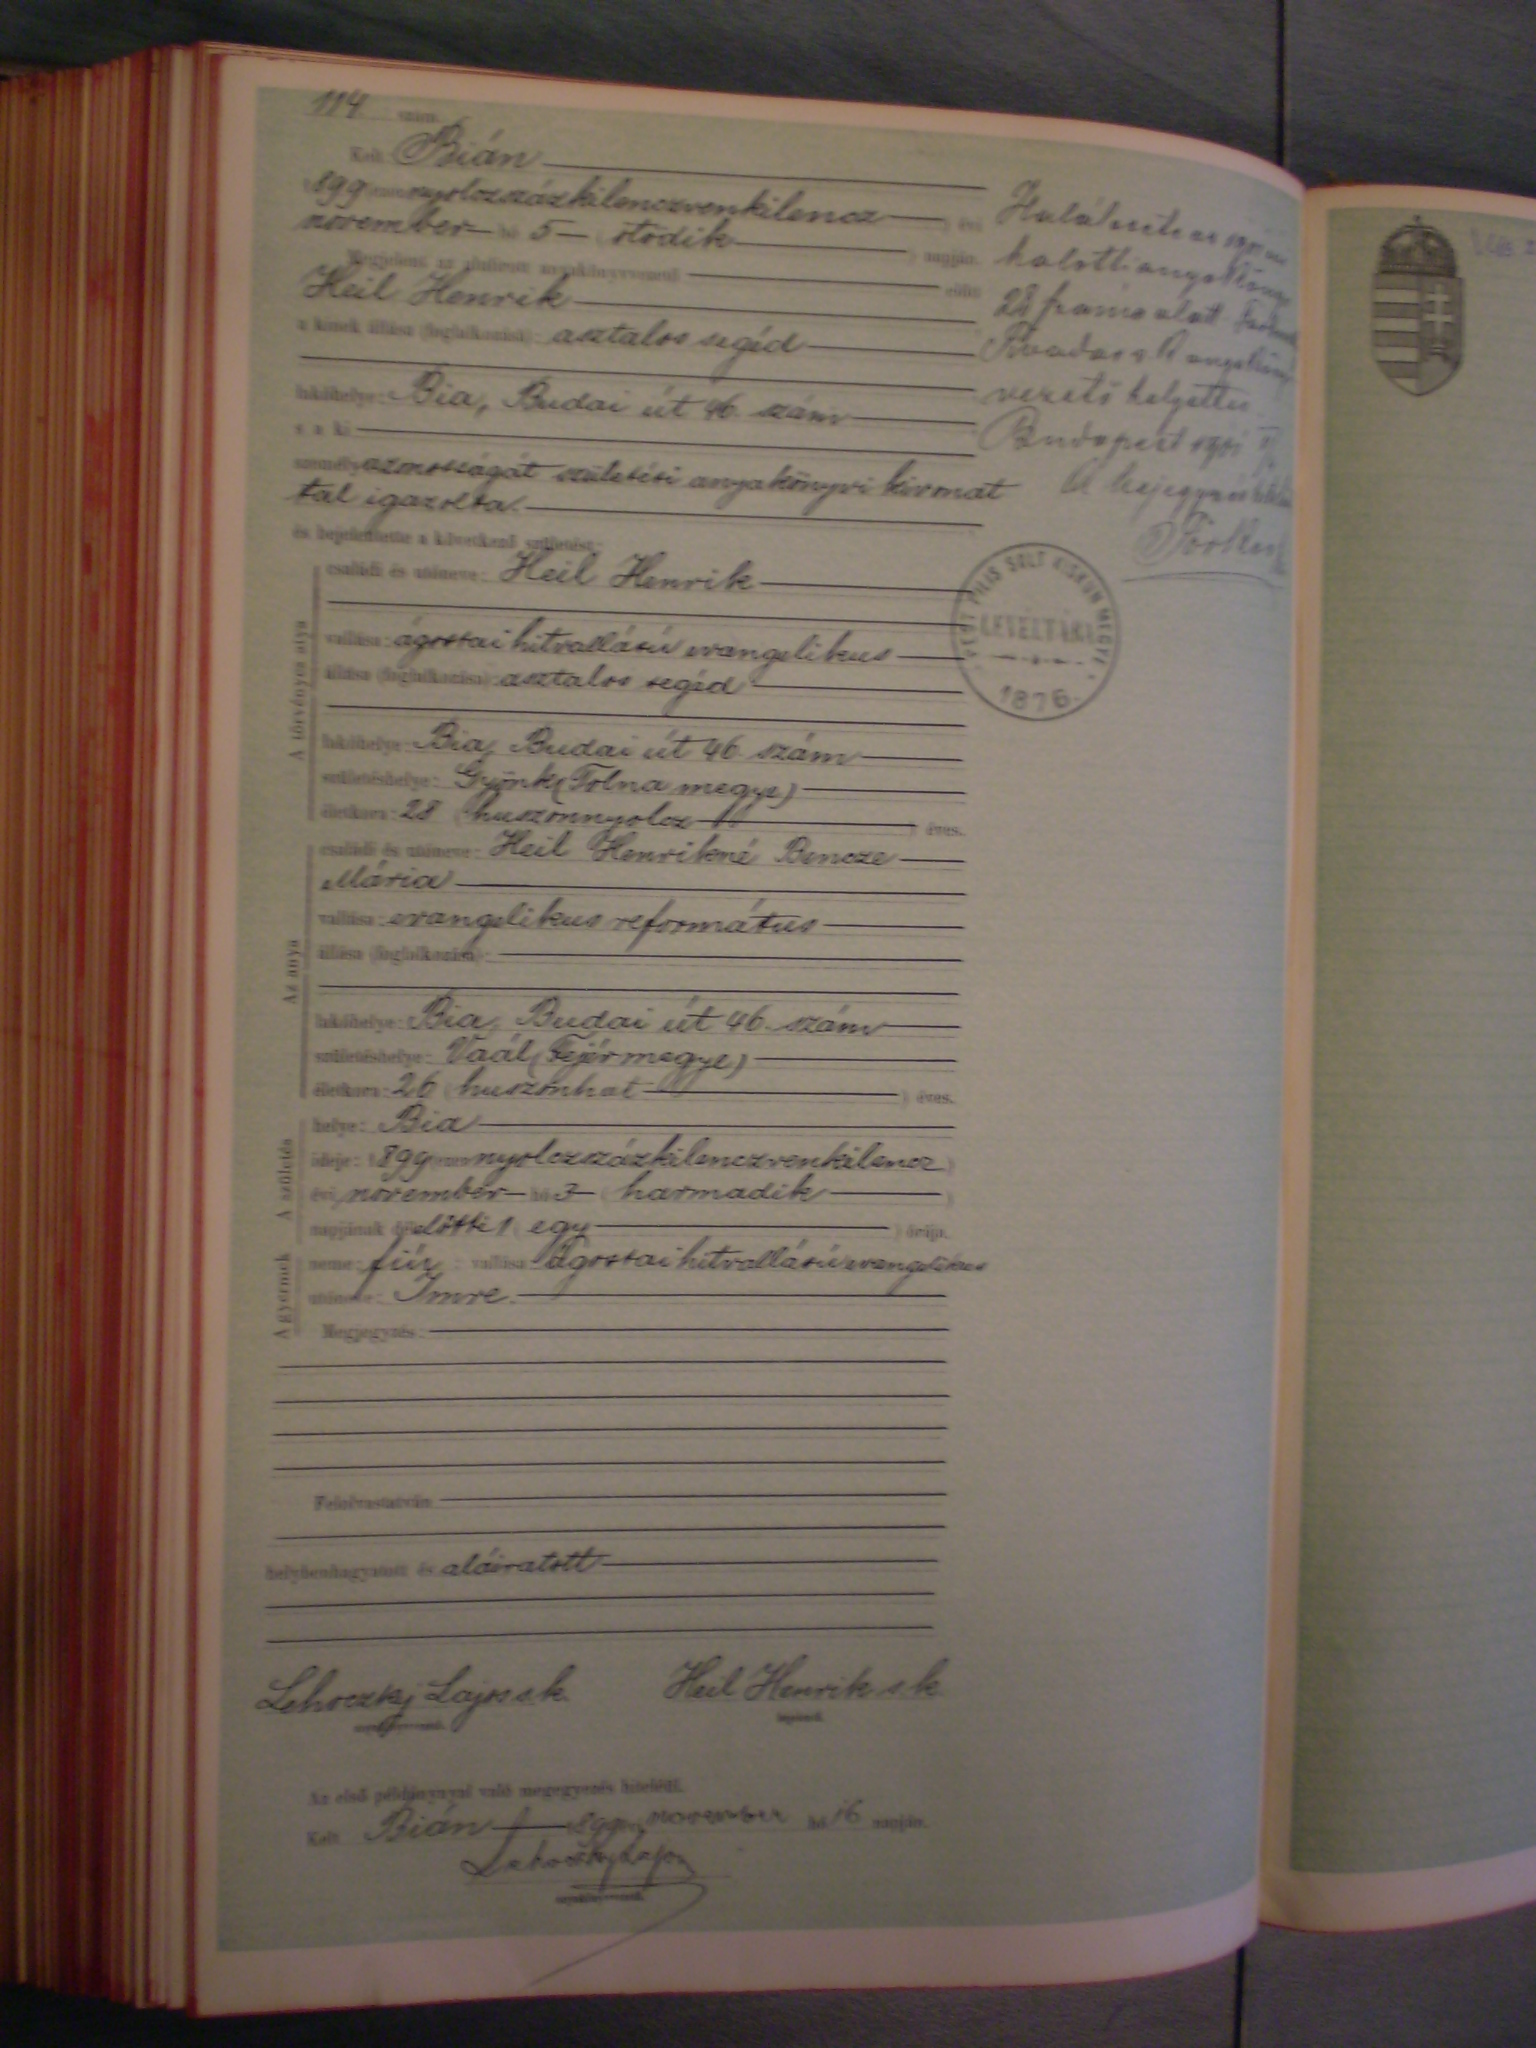 114 szám.
Kelt Bián
1899 (ezer nyolczszázkilenczvenkilencz) évi
november hó 5 (ötödik) napján.
Megjelent az alulírott anyakönyvvezető előtt
Heil Henrik
a kinek állása (foglalkozása): asztalos segéd
lakóhelye: Bia, Budai út 46. szám
s a ki
személyazonosságát születési anyakönyvi kivonat
tal igazolta.
és bejelentette a következő születést:
A törvényes atya
családi és utóneve: Heil Henrik
vallása: ágostai hitvallású evangelikus
állása (foglalkozása): asztalos segéd
lakóhelye: Bia, Budai út 46 szám
születéshelye: Gyönk (Tolna megye)
életkora: 28 (huszonnyolcz) éves.
Az anya
családi és utóneve: Heil Henrikné Bencze
Mária
vallása: evangelikus református
állása (foglalkozása):
lakóhelye: Bia, Budai út 46. szám
születéshelye: Vaál (Fejér megye)
életkora: 26 (huszonhat) éves.
A születés
helye: Bia
ideje: 1899 (ezer nyolczszázkilenczvenkilencz)
évi november hó 3 (harmadik)
napjának délelőtti 1 (egy) órája.
A gyermek
neme: fiú; vallása: ágostai hitvallású evangelikus
utóneve: Imre.
Megjegyzés:
Felolvastatván
helybenhagyatott és aláiratott
Lehoczky Lajos s.k. Heil Henrik s.k.
anyakönyvvezető.
Az első példánynyal való megegyezés hiteléül.
Kelt Bián 1899 évi november hó 16 napján.
Lehoczky Lajos
anyakönyvvezető.
28 szám alatt
vezető helyettes
Budapest 1901
PEST PILIS SOLT KISKUN MEGYE
LEVÉLTÁRA
1876